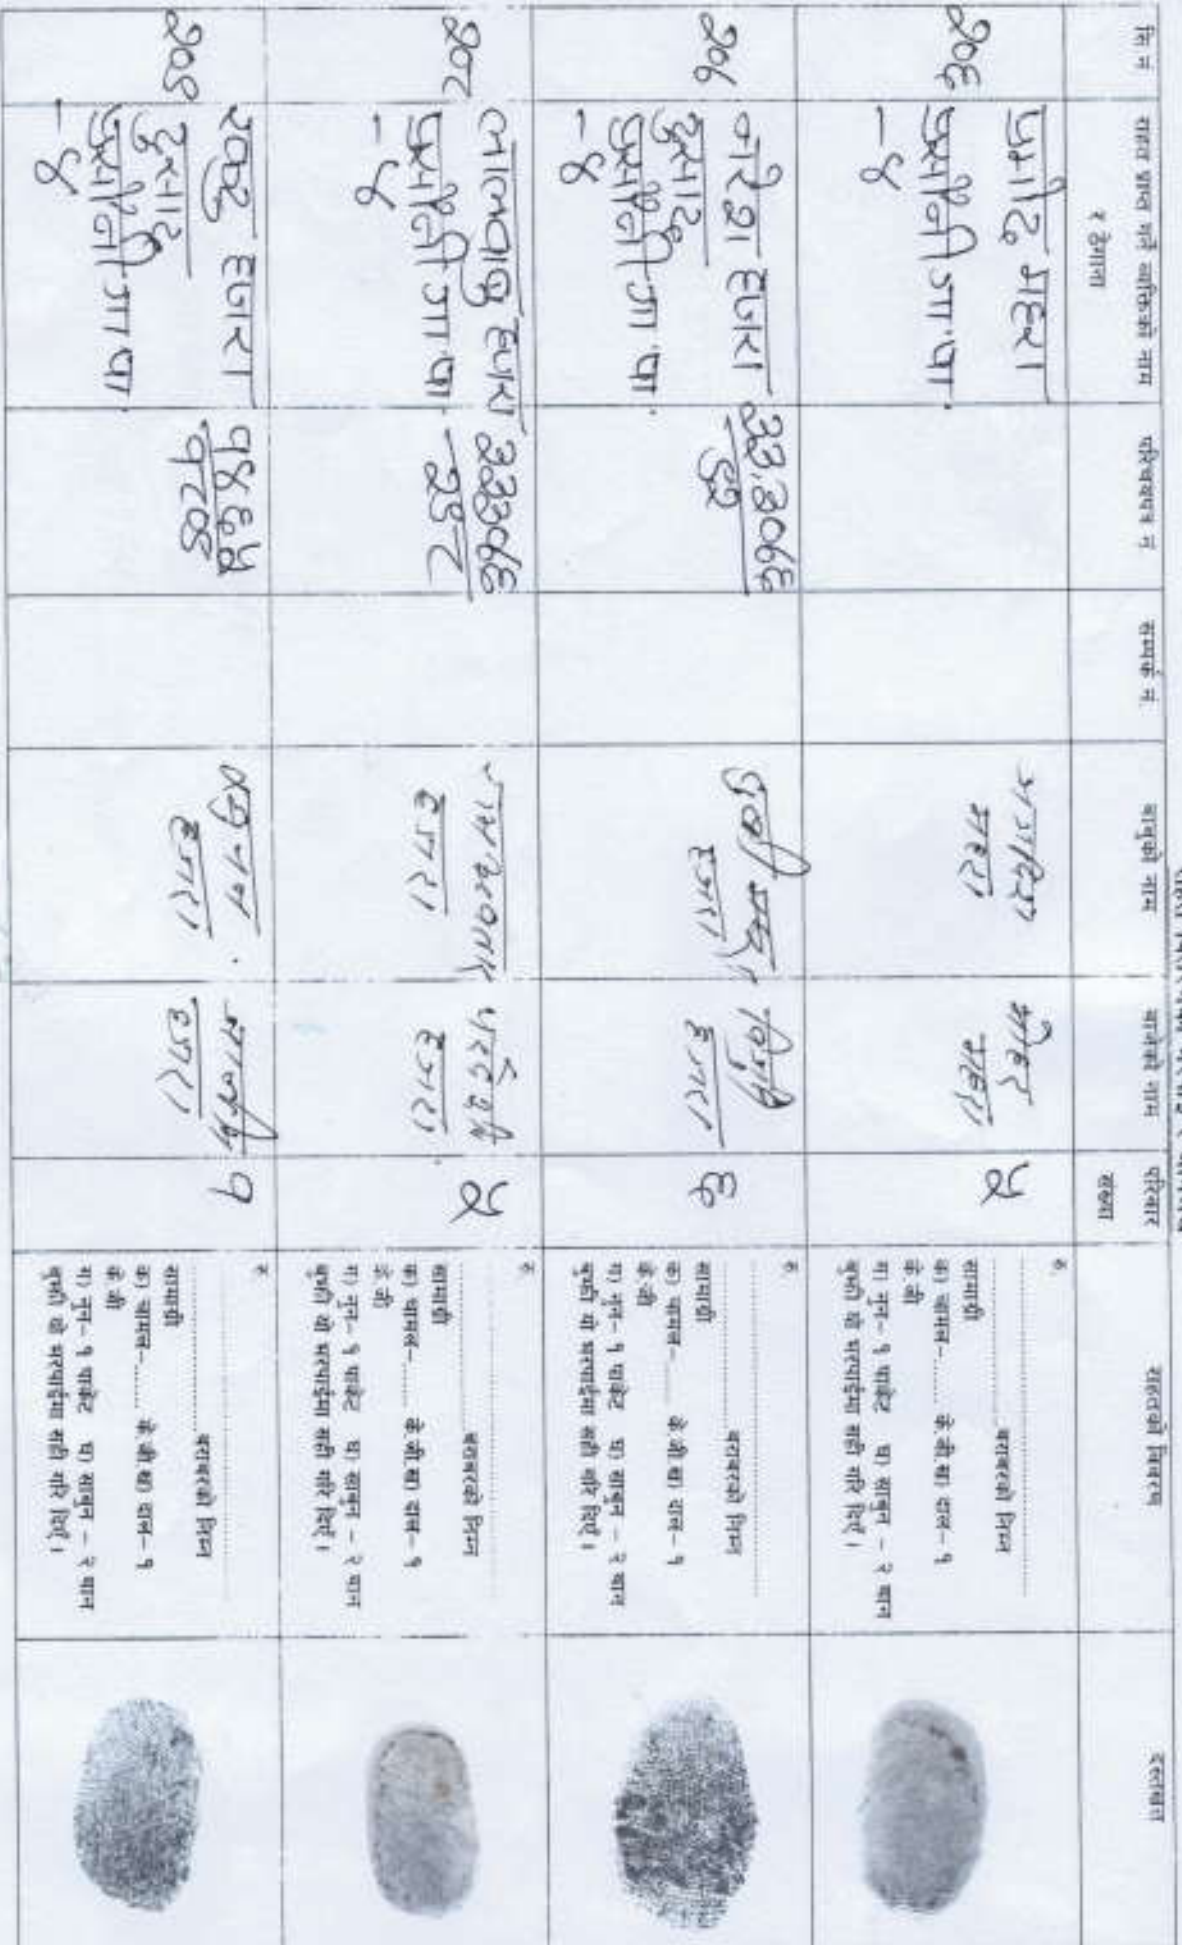 सि नं
राहत प्राप्त गर्ने व्यक्तिको नाम
र ठेगाना
परिचयपत्र नं
सम्पर्क नं.
बाबुको नाम
बाजेको नाम
परिवार
संख्या
राहतको विवरण
दस्तखत
२०६
प्रमोद महरा
प्रसौनी गा पा
-४
महरा
महरा
५
रु.
बराबरको निम्न
सामाग्री
क) चामल-...... के.जी.ख) दाल- १
के.जी
ग) नुन- १ पाकेट घ) साबुन - २ थान
बुझी यो भरपाईमा सही गरि दिएँ ।
२०७
नरेश हजरा
दुसाद
प्रसौनी गा पा
-४
३३,३०७६
हजरा
हजरा
६
रु.
बराबरको निम्न
सामाग्री
क) चामल-...... के.जी.ख) दाल- १
के.जी
ग) नुन- १ पाकेट घ) साबुन - २ थान
बुझी यो भरपाईमा सही गरि दिएँ ।
२०८
लालबाबु हजरा
प्रसौनी गा पा
-४
३३३०७६
२९८
हजरा
परदेशी
हजरा
५
रु.
बराबरको निम्न
सामाग्री
क) चामल-...... के.जी.ख) दाल- १
के.जी
ग) नुन- १ पाकेट घ) साबुन - २ थान
बुझी यो भरपाईमा सही गरि दिएँ ।
२०९
हजरा
दुसाद
प्रसौनी गा पा
-४
१४६५
१८०९
हजरा
हजरा
१
रु.
बराबरको निम्न
सामाग्री
क) चामल-...... के.जी.ख) दाल- १
के.जी
ग) नुन- १ पाकेट घ) साबुन - २ थान
बुझी यो भरपाईमा सही गरि दिएँ ।